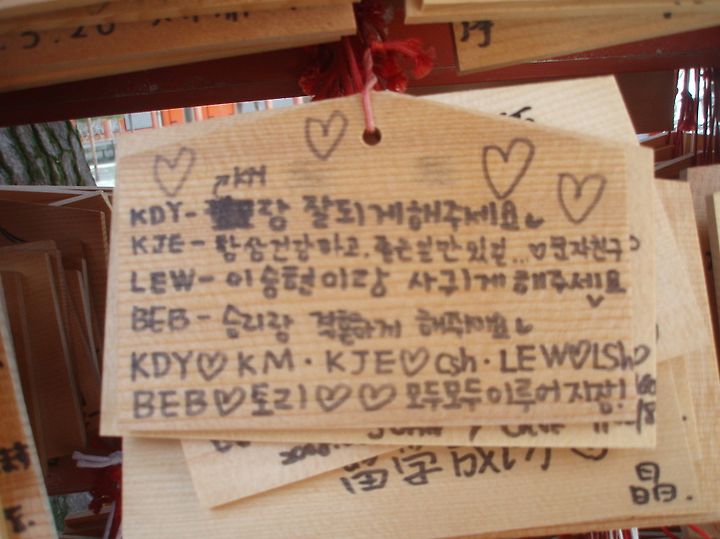 KM
KDY- 랑 잘되게해주세요
KJE- 항상건강하고, 좋은일만 있길...♡ 남자친구♡
LEW- 이승현이랑 사귀게 해주세요
BEB- 승리랑 결혼하게 해주세요
KDY♡KM·KJE♡csh·LEW♡LSh
BEB♡토리♡♡ 모두모두이루어지장!
留学
晶.